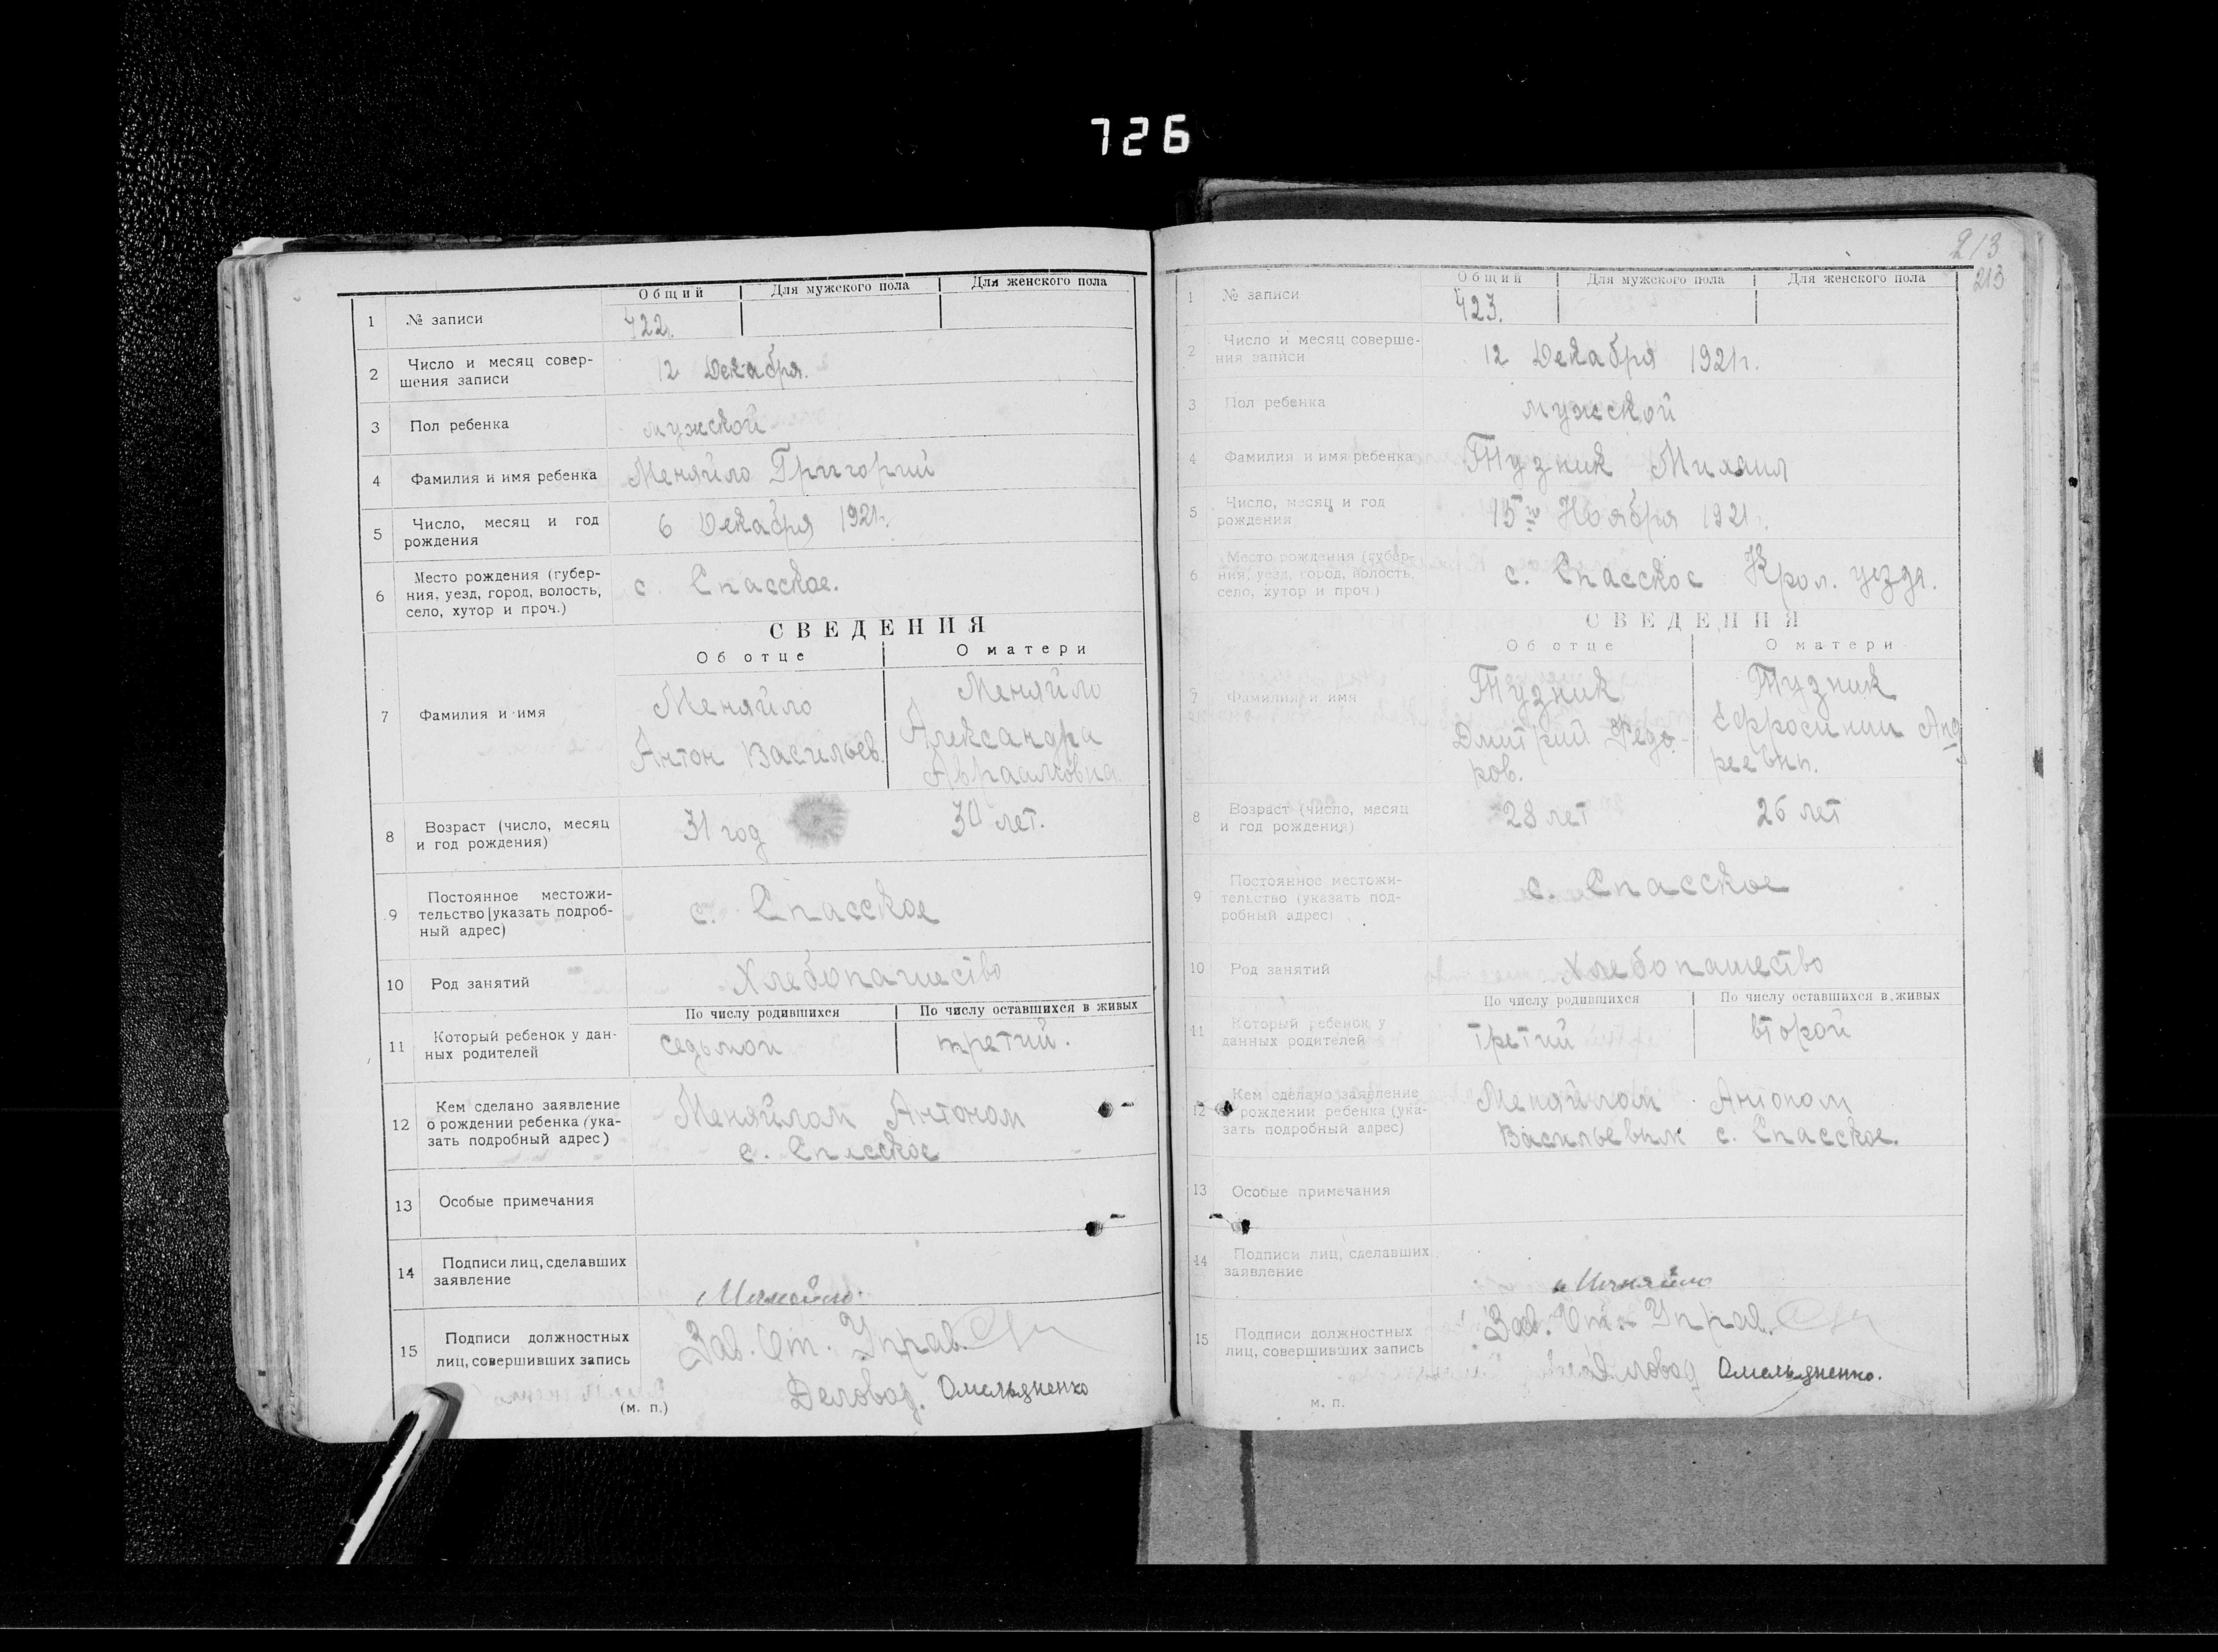 726
Общий Для мужского пола Для женского пола
1 № записи 422.
2 Число и месяц совер-
шения записи 12 Декабря.
3 Пол ребенка мужской
4 Фамилия и имя ребенка Меняйло Григорий
5 Число, месяц и год
рождения 6 Декабря 1921г.
6 Место рождения (губер-
ния, уезд, город, волость,
село, хутор и проч.) с. Спасское.
СВЕДЕНИЯ
Об отце О матери
7 Фамилия и имя
Меняйло
Антон Васильев.
Меняйло
Александра
Авраамовна.
8 Возраст (число, месяц
и год рождения) 31 год 30 лет.
9 Постоянное местожи-
тельство [указать подроб-
ный адрес) с. Спасское
10 Род занятий Хлебопашество
По числу родившихся По числу оставшихся в живых
11 Который ребенок у дан-
ных родителей седьмой третий.
12 Кем сделано заявление
о рождении ребенка (ука-
зать подробный адрес)
Меняйлом Антоном
с. Спасское
13 Особые примечания
14 Подписи лиц, сделавших
заявление Меняйло.
15 Подписи должностных
лиц, совершивших запись
Зав. От. Управ.
Деловод. Омельяненко
(м. п.)
213
213
Общий Для мужского пола Для женского пола
1 № записи 423.
2 Число и месяц соверше-
ния записи 12 Декабря 1921г.
3 Пол ребенка мужской
4 Фамилия и имя ребенка Тузник Михаил
5 Число, месяц и год
рождения 15го Ноября 1921г.
6 Место рождения (губер-
ния, уезд, город, волость,
село, хутор и проч.) с. Спасское Крол. уезда.
СВЕДЕНИЯ
Об отце О матери
7 Фамилия и имя
Тузник
Дмитрий Федо-
ров.
Тузник
Ефросинии Анд
реевны.
8 Возраст (число, месяц
и год рождения) 28 лет 26 лет
9 Постоянное местожи-
тельство (указать под-
робный адрес) с. Спасское
10 Род занятий Хлебопашество
По числу родившихся По числу оставшихся в живых
11 Который ребенок у
данных родителей третий второй
12 Кем сделано заявление
о рождении ребенка (ука-
зать подробный адрес)
Меняйлом Антоном
Васильевым с. Спасское.
13 Особые примечания
14 Подписи лиц, сделавших
заявление Меняйло
15 Подписи должностных
лиц, совершивших запись
Зав. От. Управ.
Деловод Омельяненко.
м. п.